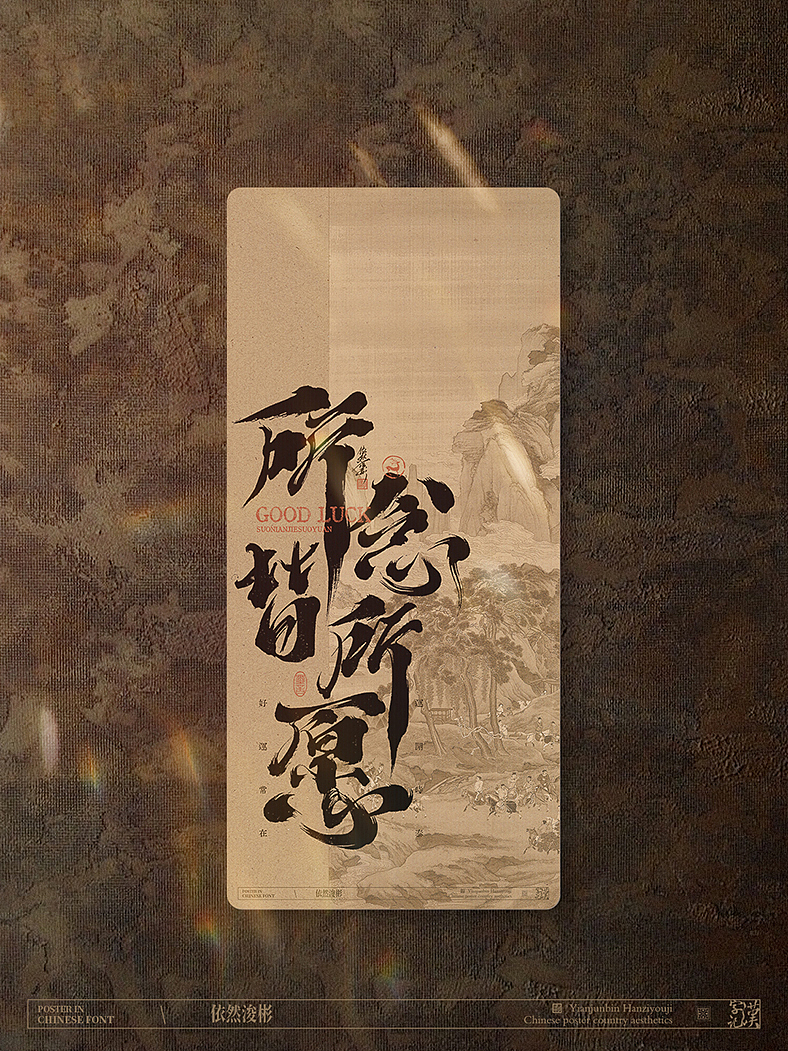 所
念
皆
所
愿
GOOD LUCK
SUONIANJIESUOYUAN
好運常在
POSTER IN
CHINESE FONT
依然浚彬
Yianjunbin Hanziyouji
Chinese poster country aesthetics
POSTER IN
CHINESE FONT
依然浚彬
Yianjunbin Hanziyouji
Chinese poster country aesthetics